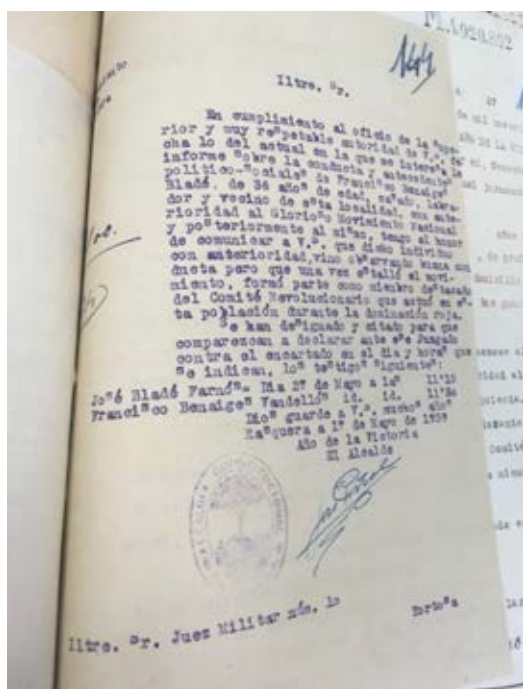 144
Iltre. Sr.
En cumplimiento al oficio de la Supe-
rior y muy respetable autoridad de V.S. fe-
cha 10 del actual en la que se interesa le
informe sobre la conducta y antecedentes
politico-sociales de Francisco Benaiges
Bladé, de 34 años de edad, casado, labra-
dor y vecino de esta localidad, con ante-
rioridad al Glorioso Movimiento Nacional
y posteriormente al mismo, tengo al honor
de comunicar a V.S. que dicho individuo
con anterioridad, vino observando buena con
ducta pero que una vez estalló el movi-
miento, formó parte como miembro destacado
del Comité Revolucionario que actuó en es-
ta población durante la dominación roja.
Se han designado y citado para que
comparezcan a declarar ante ese Juzgado
contra el encartado en el dia y horas que
se indican, los testigos siguientes:
José Bladé Farnós- Dia 27 de Mayo a las 11'15
Francisco Benaiges Vandellós id. id. 11'30
Dios guarde a V.S. muchos años
Rasquera a 17 de Mayo de 1939
Año de la Victoria
El Alcalde
Iltre. Sr. Juez Militar núm. 10 Tortosa